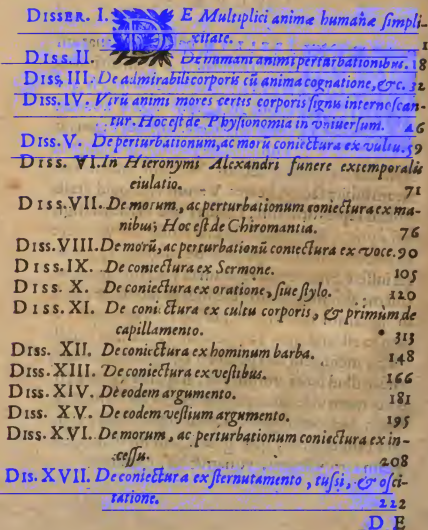 DISSER. I. DE Multiplici animæ humanæ simpli-
citate. 1
DISS. II. De humani animi perturbationibus. 18
DISS. III. De admirabili corporis cũ anima cognatione, &c. 32
DISS. IV. Virũ animi mores certis corporis signis internoscan-
tur. Hoc est de Physionomia in vniuersum. 46
DISS. V. De perturbationum, ac morũ coniectura ex vultu. 59
DISS. VI. In Hieronymi Alexandri funere extemporalis
eiulatio. 71
DISS. VII. De morum, ac perturbationum coniectura ex ma-
nibus; Hoc est de Chiromantia. 76
DISS. VIII. De morũ, ac perturbationũ coniectura ex voce. 90
DISS. IX. De coniectura ex Sermone. 105
DISS. X. De coniectura ex oratione, siue stylo. 120
DISS. XI. De coni ectura ex cultu corporis, & primum de
capillamento. 313
DISS. XII. De coniectura ex hominum barba. 148
DISS. XIII. De coniectura ex vestibus. 166
DISS. XIV. De eodem argumento. 181
DISS. XV. De eodem vestium argumento. 195
DISS. XVI. De morum, ac perturbationum coniectura ex in-
cessu. 208
DIS. XVII. De coniectura ex sternutamento, tussi, & osci-
tatione. 222
DE